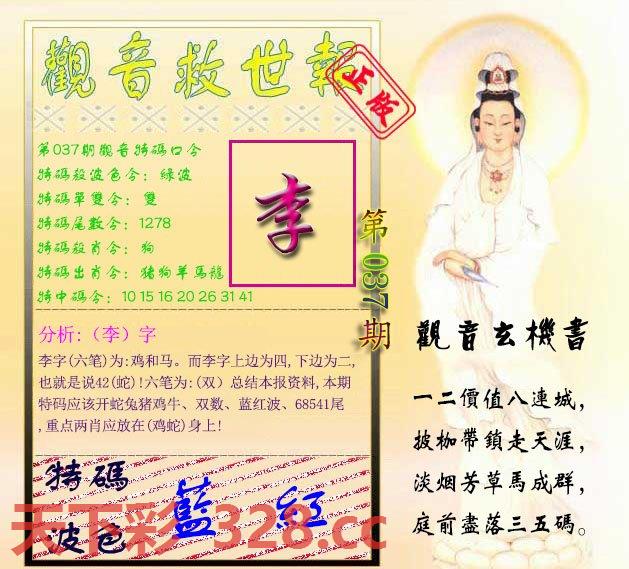 觀音救世報
正版
第037期觀音特碼口令
特碼殺波色令：綠波
特碼單雙令：雙
特碼尾數令：1278
特碼殺肖令：狗
特碼出肖令：猪狗羊馬龍
特中碼令：10 15 16 20 26 31 41
李
第037期
分析:（李）字
李字(六笔)为:鸡和马。而李字上边为四,下边为二,
也就是说42(蛇)!六笔为:(双）总结本报资料,本期
特码应该开蛇兔猪鸡牛、双数、蓝红波、68541尾
,重点两肖应放在(鸡蛇)身上!
特碼
波色
藍 紅
天下彩1328.cc
觀音玄機書
一二價值八連城，
披枷帶鎖走天涯，
淡烟芳草馬成群，
庭前盡落三五碼。